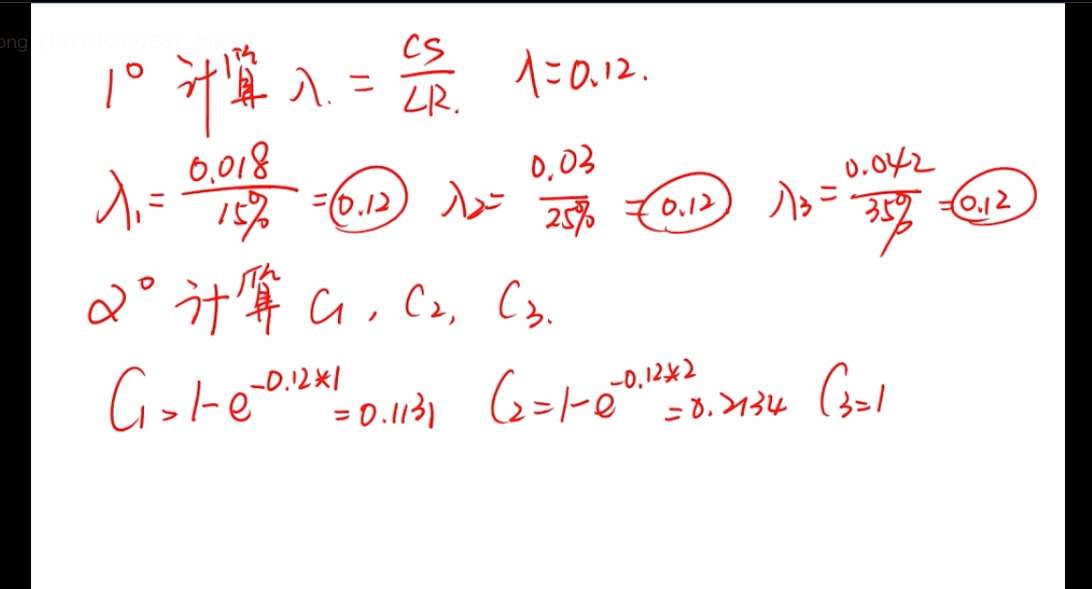 ong
1° 计算 λ. = CS/LR. λ=0.12.
λ₁ = 0.018/15% = 0.12 λ₂= 0.03/25% = 0.12 λ₃ = 0.042/35% = 0.12
2° 计算 C₁, C₂, C₃.
C₁ = 1-e^(-0.12*1) = 0.1131 C₂ = 1-e^(-0.12*2) = 0.2134 C₃=1